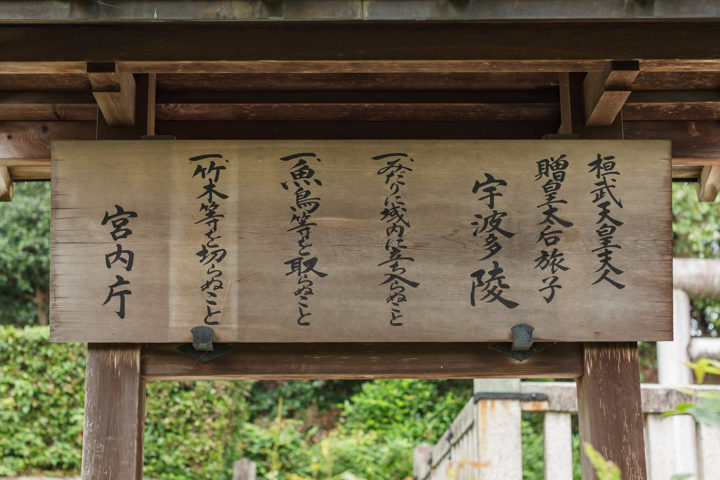 桓武天皇夫人
贈皇太后旅子
宇波多陵
一みだりに域内に立ち入らぬこと
一魚鳥等を取らぬこと
一竹木等を切らぬこと
宮内庁